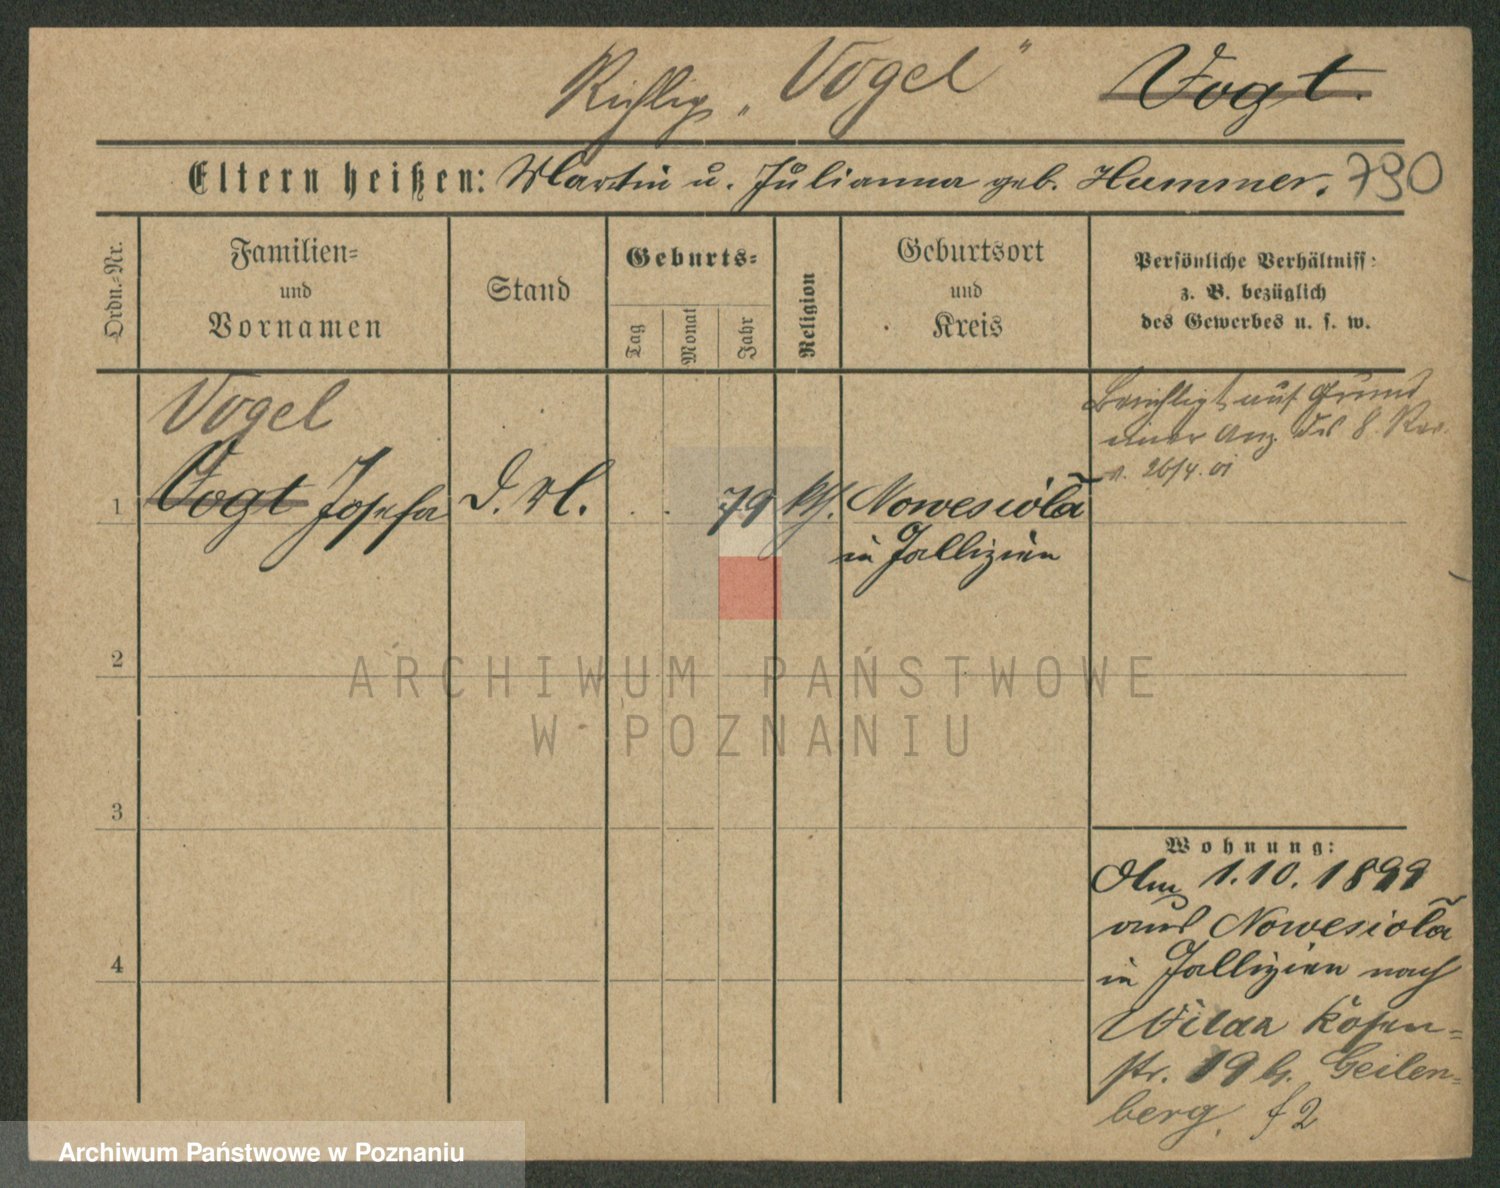 Richtig „Vogel“ Vogt.
Eltern heißen: Martin u. Julianna geb. Hummer. 790
Ordn.-Nr.
Familien-
und
Vornamen
Stand
Geburts-
Tag
Monat
Jahr
Religion
Geburtsort
und
Kreis
Persönliche Verhältniss:
z. B. bezüglich
des Gewerbes u. s. w.
Vogel
1 Vogt Josefa D. Rl. . . 79 kth. Nowesiola
in Gallizien
Berichtigt auf Grund
einer Anz. des 8. Rev.
v. 26/4. 01
2
3
4
Wohnung:
Am 1.10. 1899
aus Nowesiola
in Gallizien nach
Wilda Rosen-
str. 19 b. Geilen-
berg. f 2
ARCHIWUM PAŃSTWOWE
W POZNANIU
Archiwum Państwowe w Poznaniu